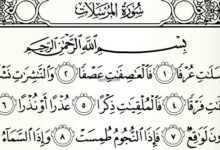 سُورَةُ الْمُرْسَلَاتِ
بِسْمِ اللَّهِ الرَّحْمَٰنِ الرَّحِيمِ
سَلَٰتِ عُرْفًا ١ فَالْعَٰصِفَٰتِ عَصْفًا ٢ وَالنَّٰشِرَٰتِ نَشْ
تِ فَرْقًا ٤ فَالْمُلْقِيَٰتِ ذِكْرًا ٥ عُذْرًا أَوْ نُذْرًا ٦
ونَ لَوَٰقِعٌ ٧ فَإِذَا النُّجُومُ طُمِسَتْ ٨ وَإِذَا السَّمَآءُ